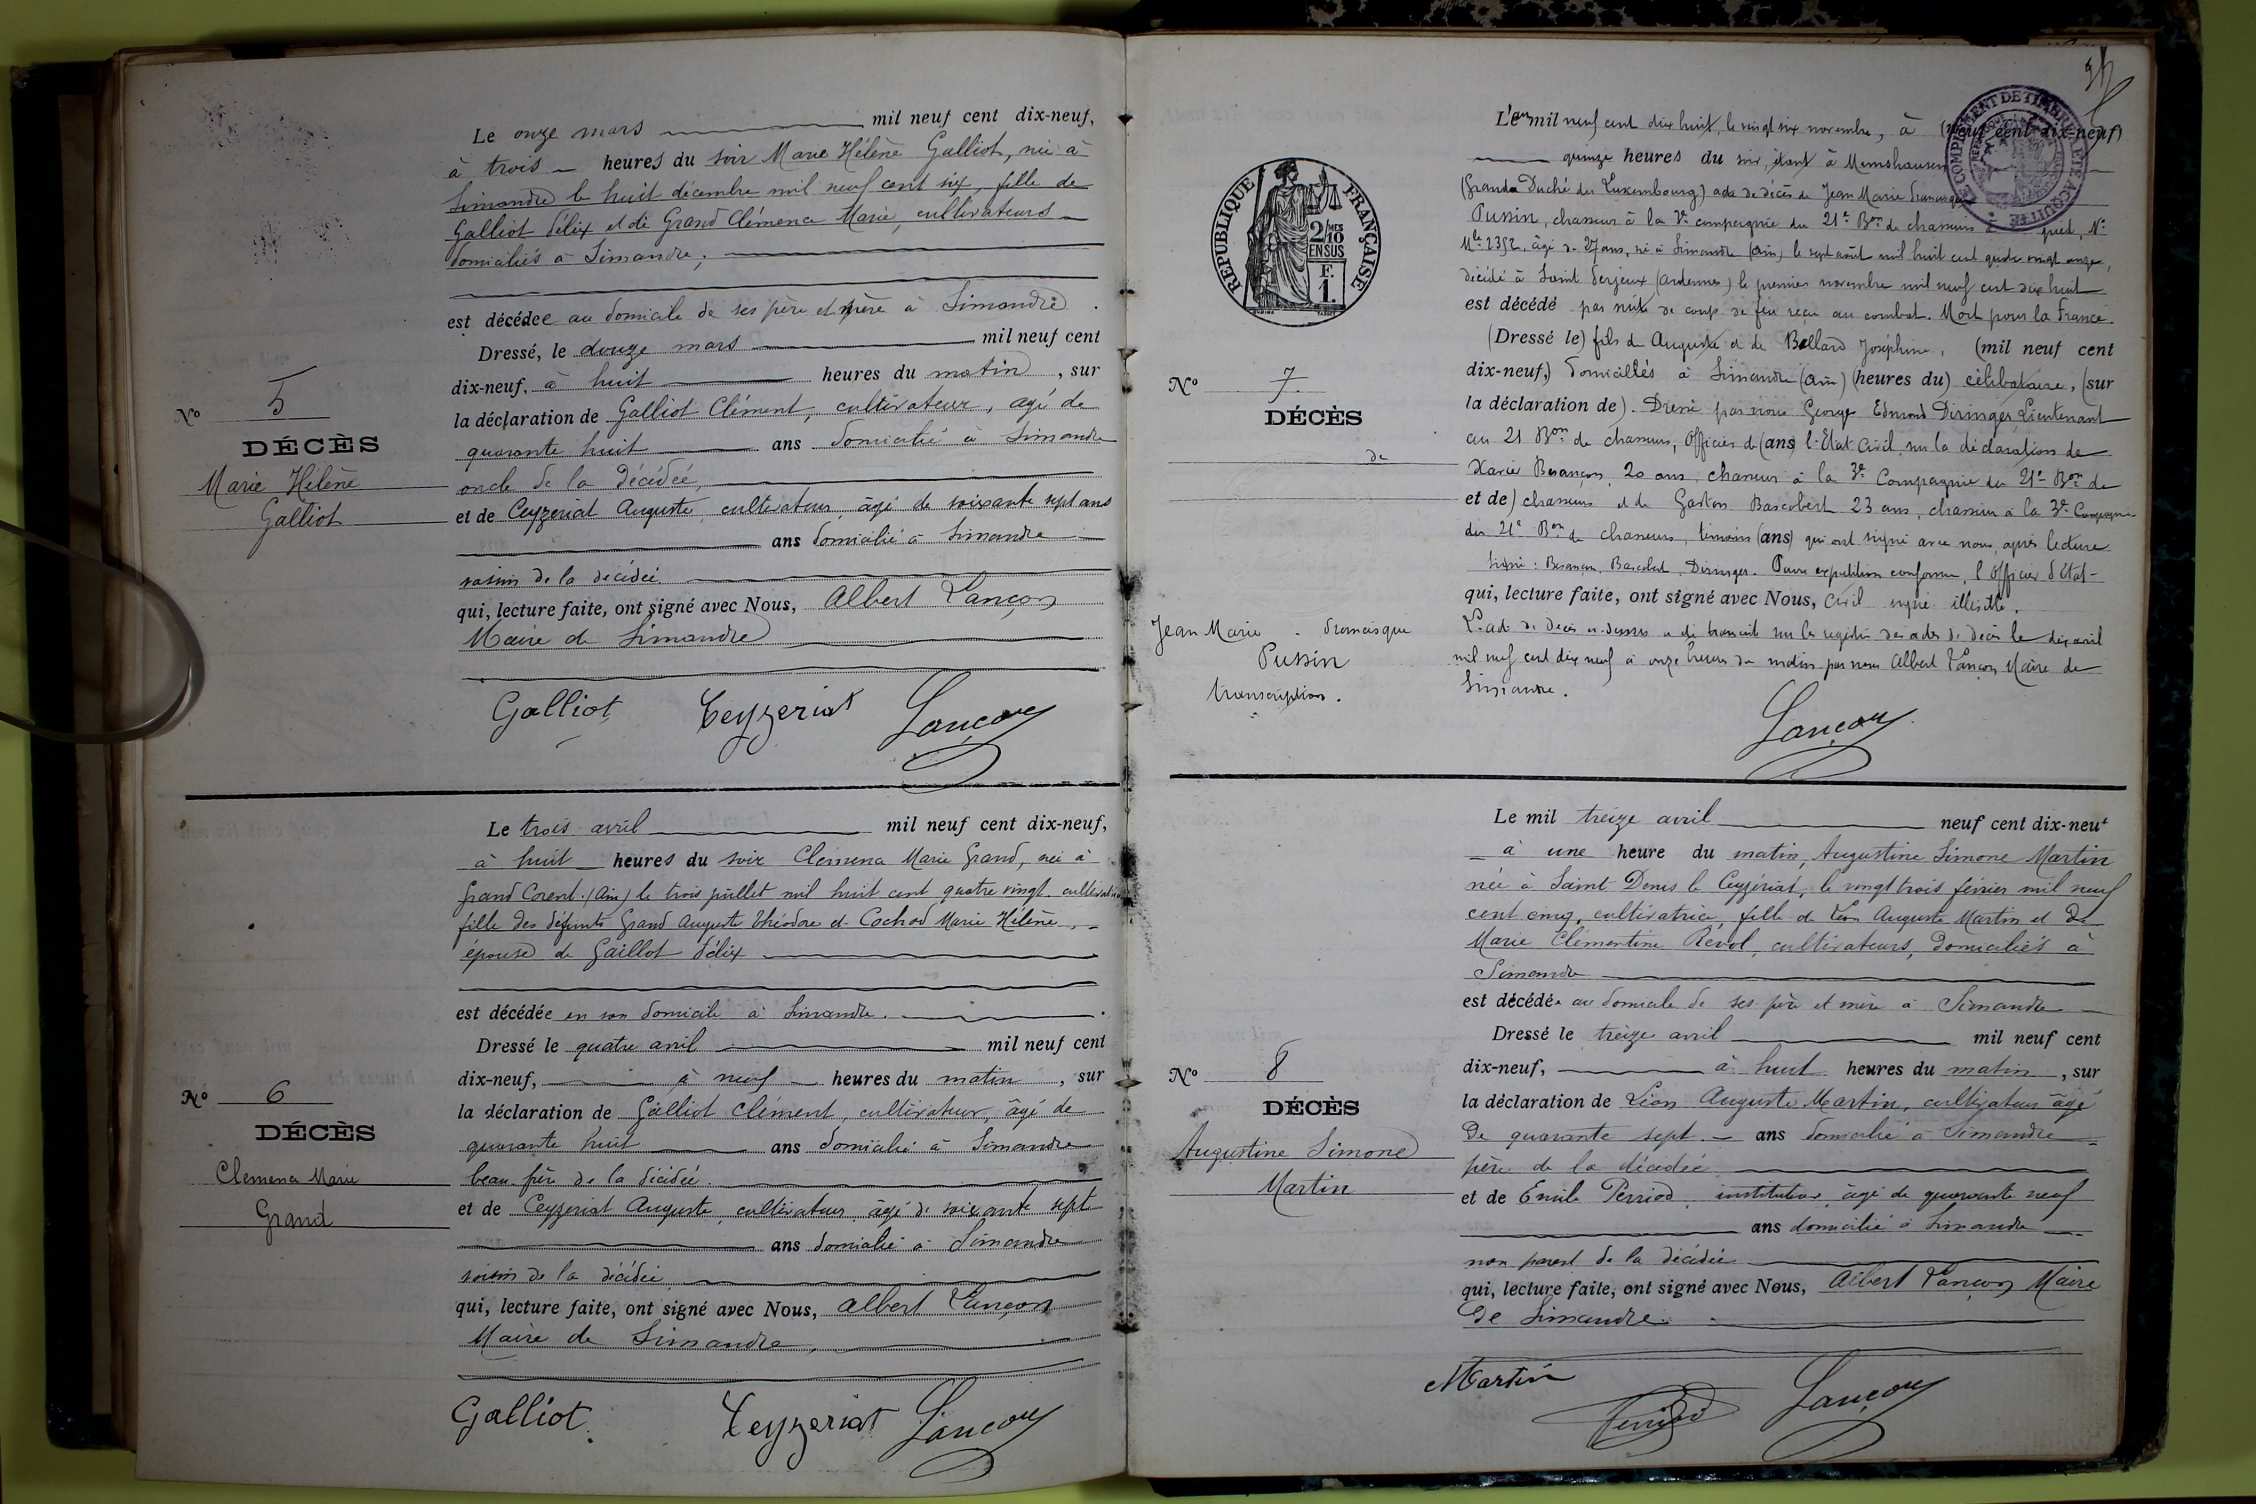 Le onze mars mil neuf cent dix-neuf,
à trois heures du soir Marie Hélène Galliot, née à
Simandre le huit décembre mil neuf cent six, fille de
Galliot Félix et de Grand Clémence Marie, cultivateurs
domiciliés à Simandre,
est décédée au domicile de ses père et mère à Simandre.
Dressé, le douze mars mil neuf cent
dix-neuf, à huit heures du matin, sur
la déclaration de Galliot Clément, cultivateur, agé de
quarante huit ans domicilié à Simandre
oncle de la décédée,
et de Ceyzeriat Auguste, cultivateur, âgé de soixante sept ans
ans domicilié à Simandre
voisin de la décédée
qui, lecture faite, ont signé avec Nous, Albert Lançon
Maire de Simandre
Galliot Ceyzeriat Lançon
No 5
DÉCÈS
Marie Hélène
Galliot
Le trois avril mil neuf cent dix-neuf,
à huit heures du soir Clemence Marie Grand, née à
Grand Corent (Ain) le trois juillet mil huit cent quatre vingt cultivatrice
fille des défunts Grand Auguste Théodore et Cochod Marie Hélène,
épouse de Gaillot Félix
est décédée en son domicile à Simandre.
Dressé le quatre avril mil neuf cent
dix-neuf, à neuf heures du matin, sur
la déclaration de Galliot Clément, cultivateur, âgé de
quarante huit ans domicilié à Simandre
beau-frère de la décédée.
et de Ceyzeriat Auguste, cultivateur, âgé de soixante sept
ans domicilié à Simandre
voisin de la décédée
qui, lecture faite, ont signé avec Nous, Albert Lançon
Maire de Simandre,
Galliot Ceyzeriat Lançon
No 6
DÉCÈS
Clemence Marie
Grand
TIMBRE
RÉPUBLIQUE FRANÇAISE
2/10 MES
EN SUS
F.
1.
L'an mil neuf cent dix huit, le vingt six novembre, à (neuf cent dix-neuf)
quinze heures du soir, étant à Munshausen
(Grand Duché du Luxembourg) acte de décès de Jean Marie Francisque
Pussin, chasseur à la Ve compagnie du 21e Bon de chasseurs à pied, No
Mle 2352, âgé de 27 ans, né à Simandre (Ain) le sept août mil huit cent quatre vingt onze,
décédé à Saint Fergeux (Ardennes) le premier novembre mil neuf cent dix huit
est décédé par suite de coups de feu reçu au combat. Mort pour la France.
(Dressé le) fils de Auguste et de Bellard Joséphine, (mil neuf cent
dix-neuf,) domiciliés à Simandre (Ain) (heures du) célibataire, (sur
la déclaration de). Dressé par nous George Edmond Diringer Lieutenant
au 21 Bon de chasseurs, Officier de (ans) l'Etat Civil, sur la déclaration de
Xavier Besançon, 20 ans, chasseur à la 3e Compagnie du 21e Bon de
et de) chasseurs et de Gaston Bascobert 23 ans, chasseur à la 3e Compagnie
du 21e Bon de chasseurs, témoins (ans) qui ont signé avec nous, après lecture
Signé: Besançon, Bascobert, Diringer. Pour expédition conforme, l'Officier d'Etat-
qui, lecture faite, ont signé avec Nous, Civil signé illisible.
L'acte de décès ci-dessus a été transcrit sur les registres des actes de décès le dix avril
mil neuf cent dix neuf à onze heures du matin par nous Albert Lançon Maire de
Simandre.
Lançon
No 7
DÉCÈS
de
Jean Marie Francisque
Pussin
transcription.
Le mil treize avril neuf cent dix-neuf
à une heure du matin, Augustine Simone Martin
née à Saint Denis le Ceyzériat, le vingt trois février mil neuf
cent cinq, cultivatrice, fille de Léon Auguste Martin et de
Marie Clémentine Révol, cultivateurs, domiciliés à
Simandre
est décédée au domicile de ses père et mère à Simandre
Dressé le treize avril mil neuf cent
dix-neuf, à huit heures du matin, sur
la déclaration de Léon Auguste Martin, cultivateur âgé
de quarante sept ans domicilié à Simandre
père de la décédée
et de Emile Perriod, instituteur, âgé de quarante neuf
ans domicilié à Simandre
non parent de la décédée
qui, lecture faite, ont signé avec Nous, Albert Lançon Maire
de Simandre.
Martin Perriod Lançon
No 8
DÉCÈS
Augustine Simone
Martin